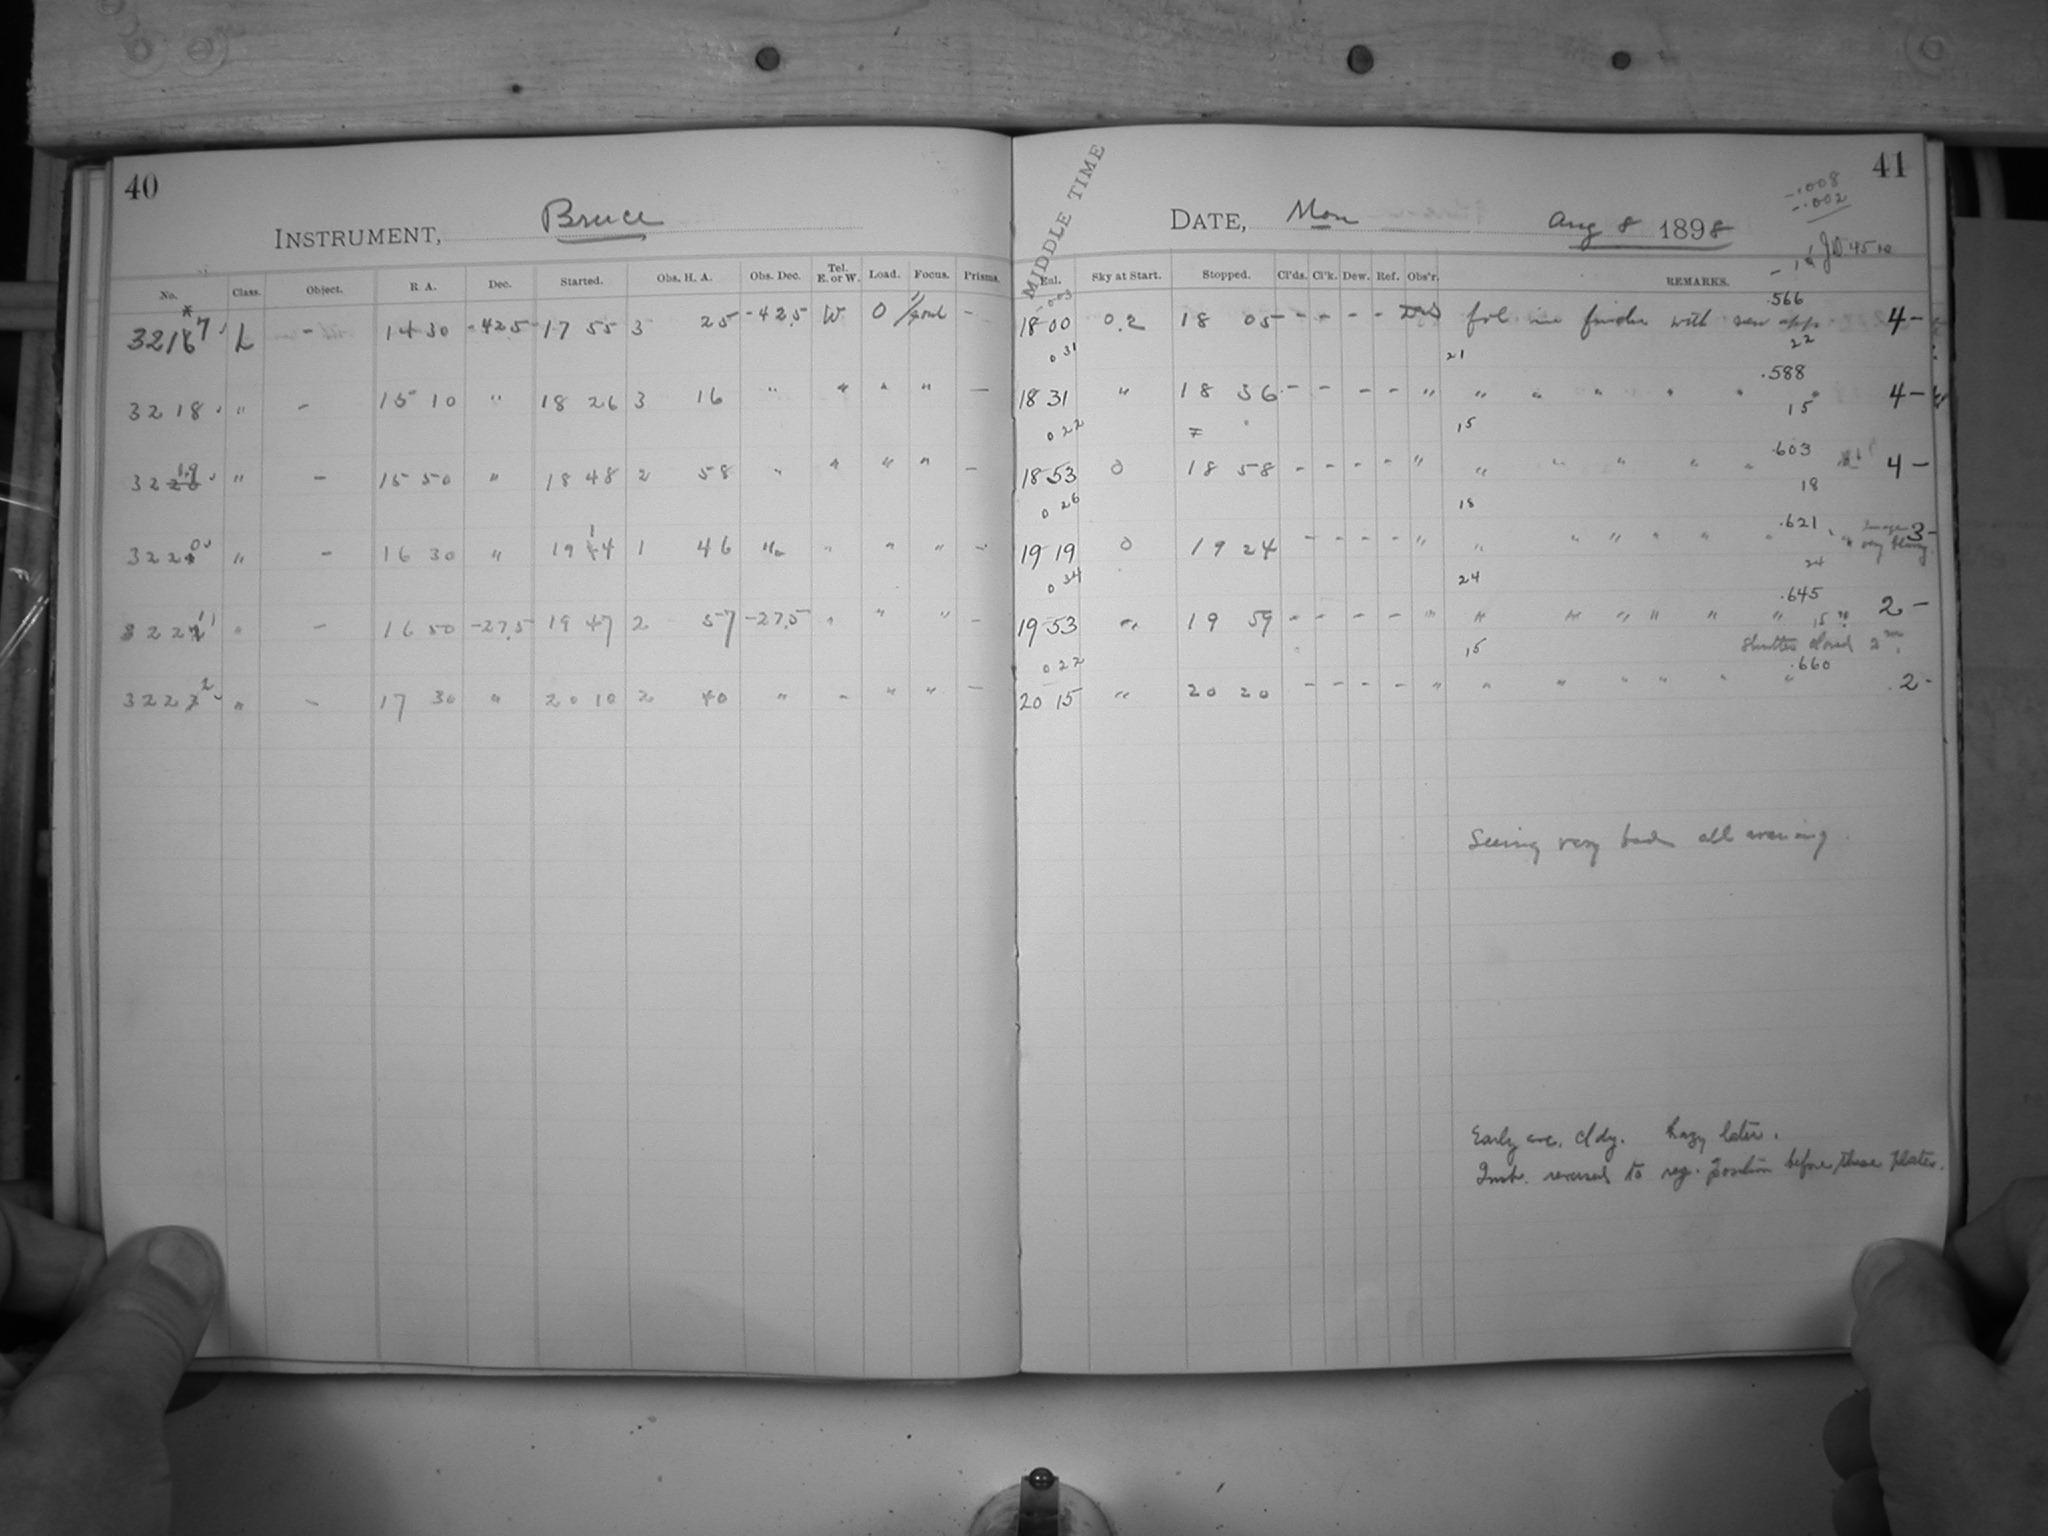 40
INSTRUMENT, Bruce
No. Class. Object. R. A. Dec. Started. Obs. H. A. Obs. Dec. Tel. E. or W. Load. Focus. Prisms.
3217 L - 14 30 -42.5 17 55 3 25 -42.5 W 0 -
3218 " - 15 10 " 18 26 3 16 " " " " -
3219 " - 15 50 " 18 48 2 58 " " " " -
3220 " - 16 30 " 19 14 1 46 " " " " -
3221 " - 16 50 -27.5 19 47 2 57 -27.5 " " " -
3222 " - 17 30 " 20 10 2 40 " " " " -
41
MIDDLE TIME
DATE, Mon Aug 8 1898
-.008
-.002
JD 4510
Sky at Start. Stopped. Cl'ds. Cl'k. Dew. Ref. Obs'r. REMARKS.
.566
18 00 0.2 18 05 - - - - fol in finder with new app 4-
0 31 21 22
.588
18 31 " 18 36 - - - - " " " " " " 4-
0 22 15 15
.603
18 53 0 18 58 - - - - " " " " " " 4-
0 26 18 18
.621
19 19 0 19 24 - - - - " " " " " " " Image very blurry 3-
0 34 24 24
.645
19 53 " 19 59 - - - - " " " " " " " 2-
0 22 15 15 Shutter closed 2m.
.660
20 15 " 20 20 - - - - " " " " " " " 2-
Seeing very bad all evening.
Early eve. cldy. hazy later.
Inst. reversed to reg. position before these plates.